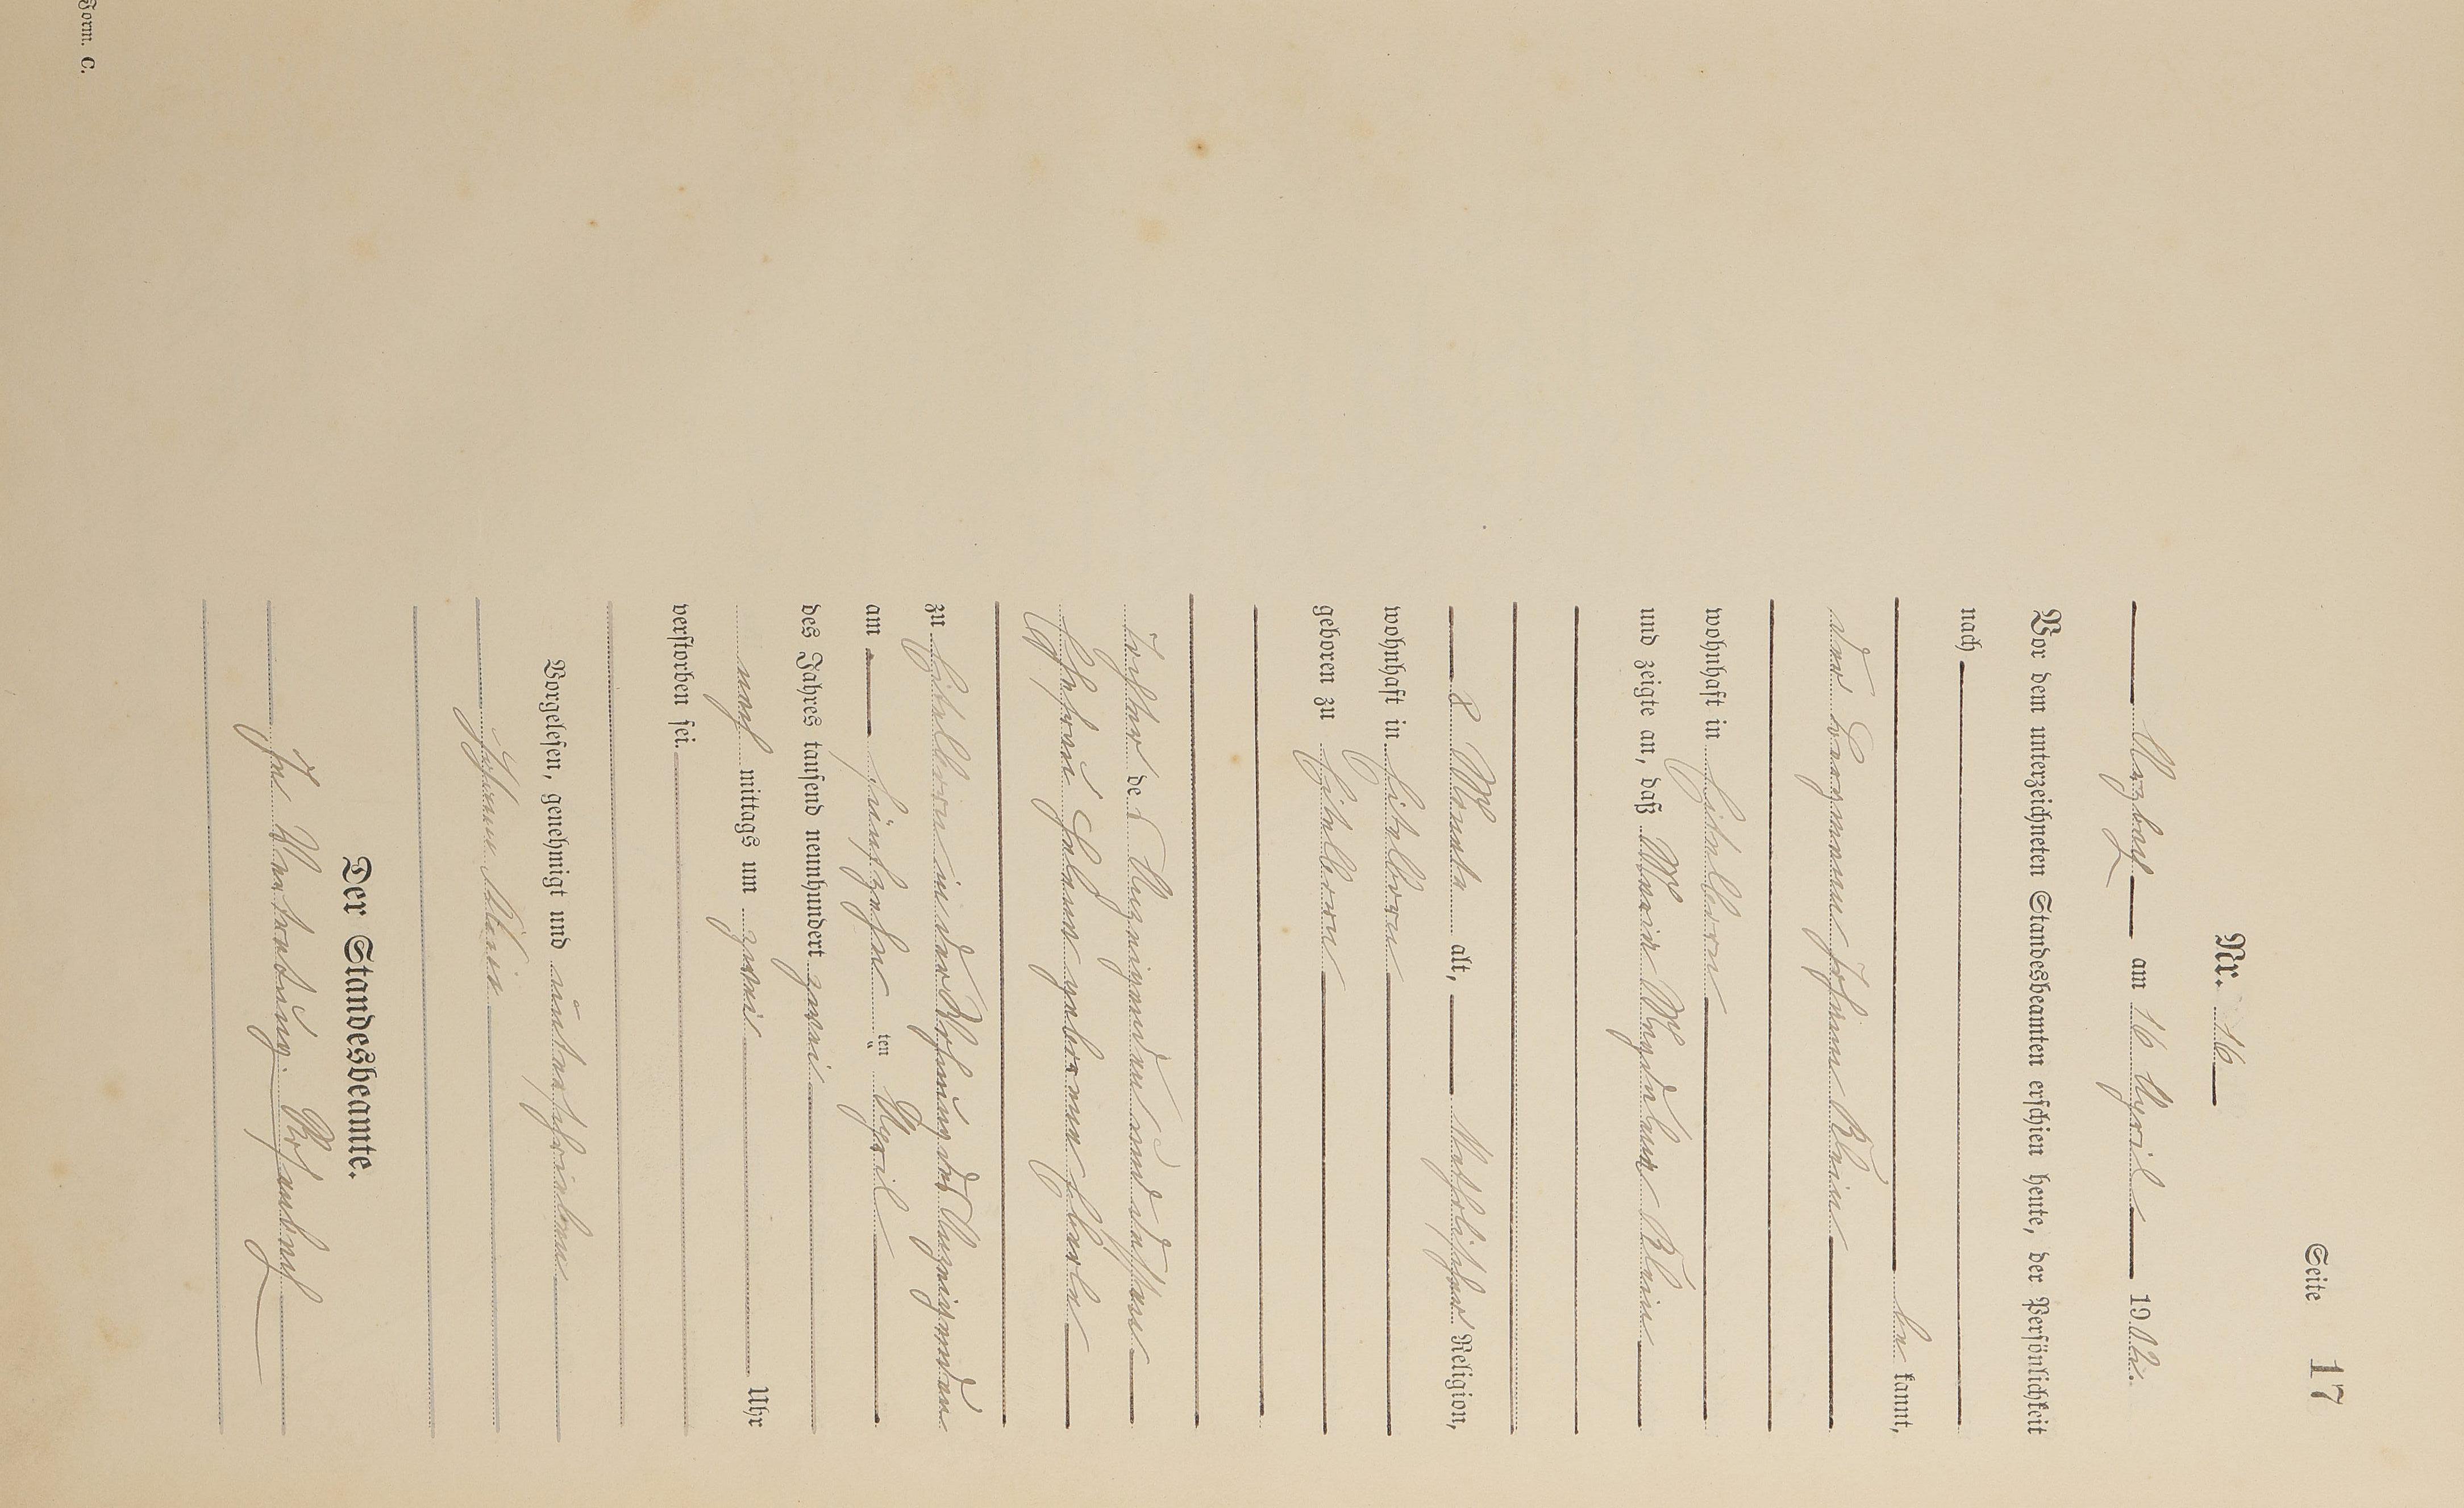 Seite 17
Nr. 16
am 16 April 1902.
Vor dem unterzeichneten Standesbeamten erschien heute, der Persönlichkeit
nach
be kannt,
der Bergmann Johann Klein
wohnhaft in Hitelborn
und zeigte an, daß Maria Magdalena Klein
8 Monate alt, katholischer Religion,
wohnhaft in Hitelborn
geboren zu Hitelborn
Tochter des Anzeigenden und dessen
Ehefrau geborenen
zu Hitelborn in der Wohnung des Anzeigenden
am fünfzehn ten April
des Jahres tausend neunhundert zwei
nach mittags um zwei Uhr
verstorben sei.
Vorgelesen, genehmigt und unterschrieben
Johann Klein
Der Standesbeamte.
In Vertretung:
Form. C.